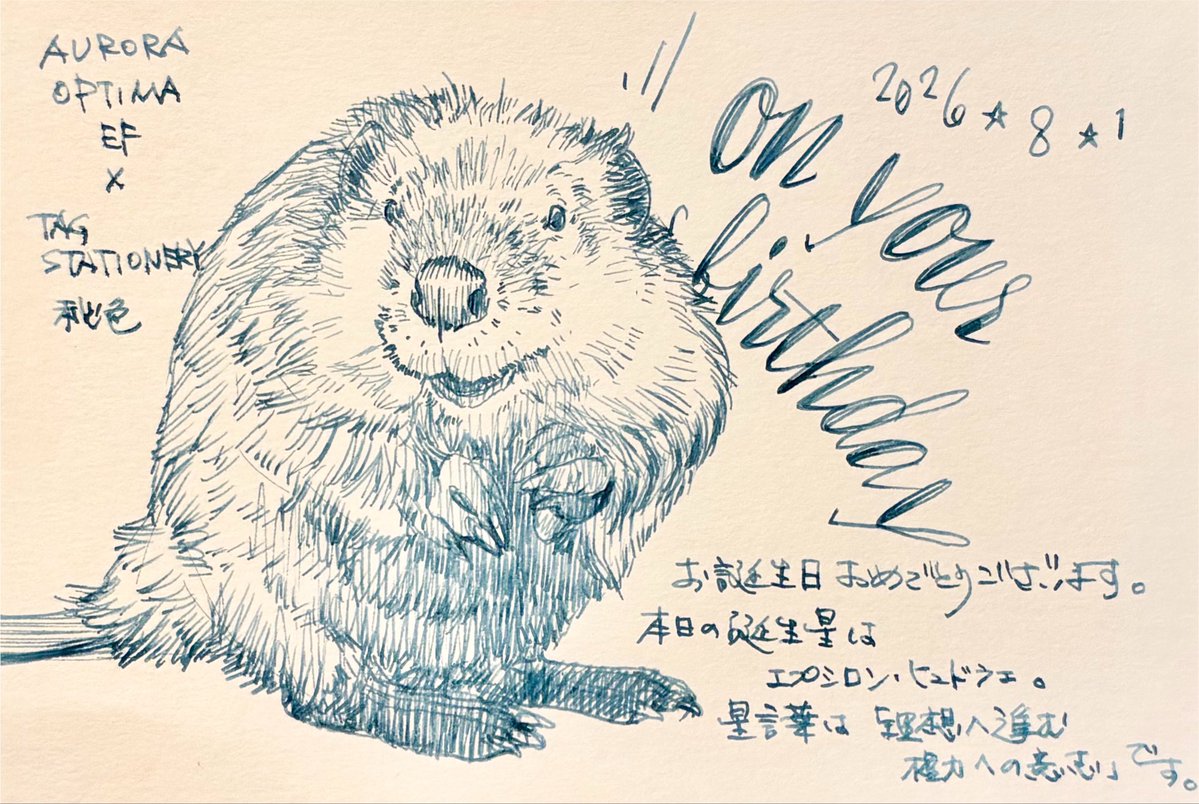 AURORA
OPTIMA
EF
×
TAG
STATIONERY
秘色
2026☆8☆1
on your
birthday
お誕生日おめでとうございます。
本日の誕生星は
エプシロン・ヒュドラエ。
星言葉は「理想へ進む
権力への意志」です。